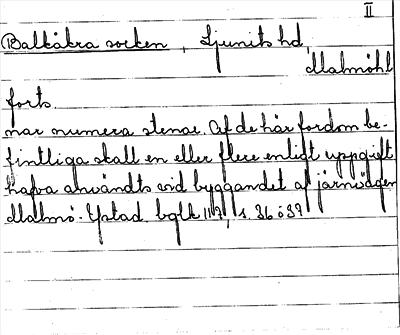 II
Balkåkra socken, Ljunits hd,
Malmöhl
forts.
nar numera stenar. Af de här fordom be-
fintliga skall en eller flere enligt uppgift
hafva användts vid byggandet af järnvägen
Malmö-Ystad. bglk 117, s. 36 ö 37